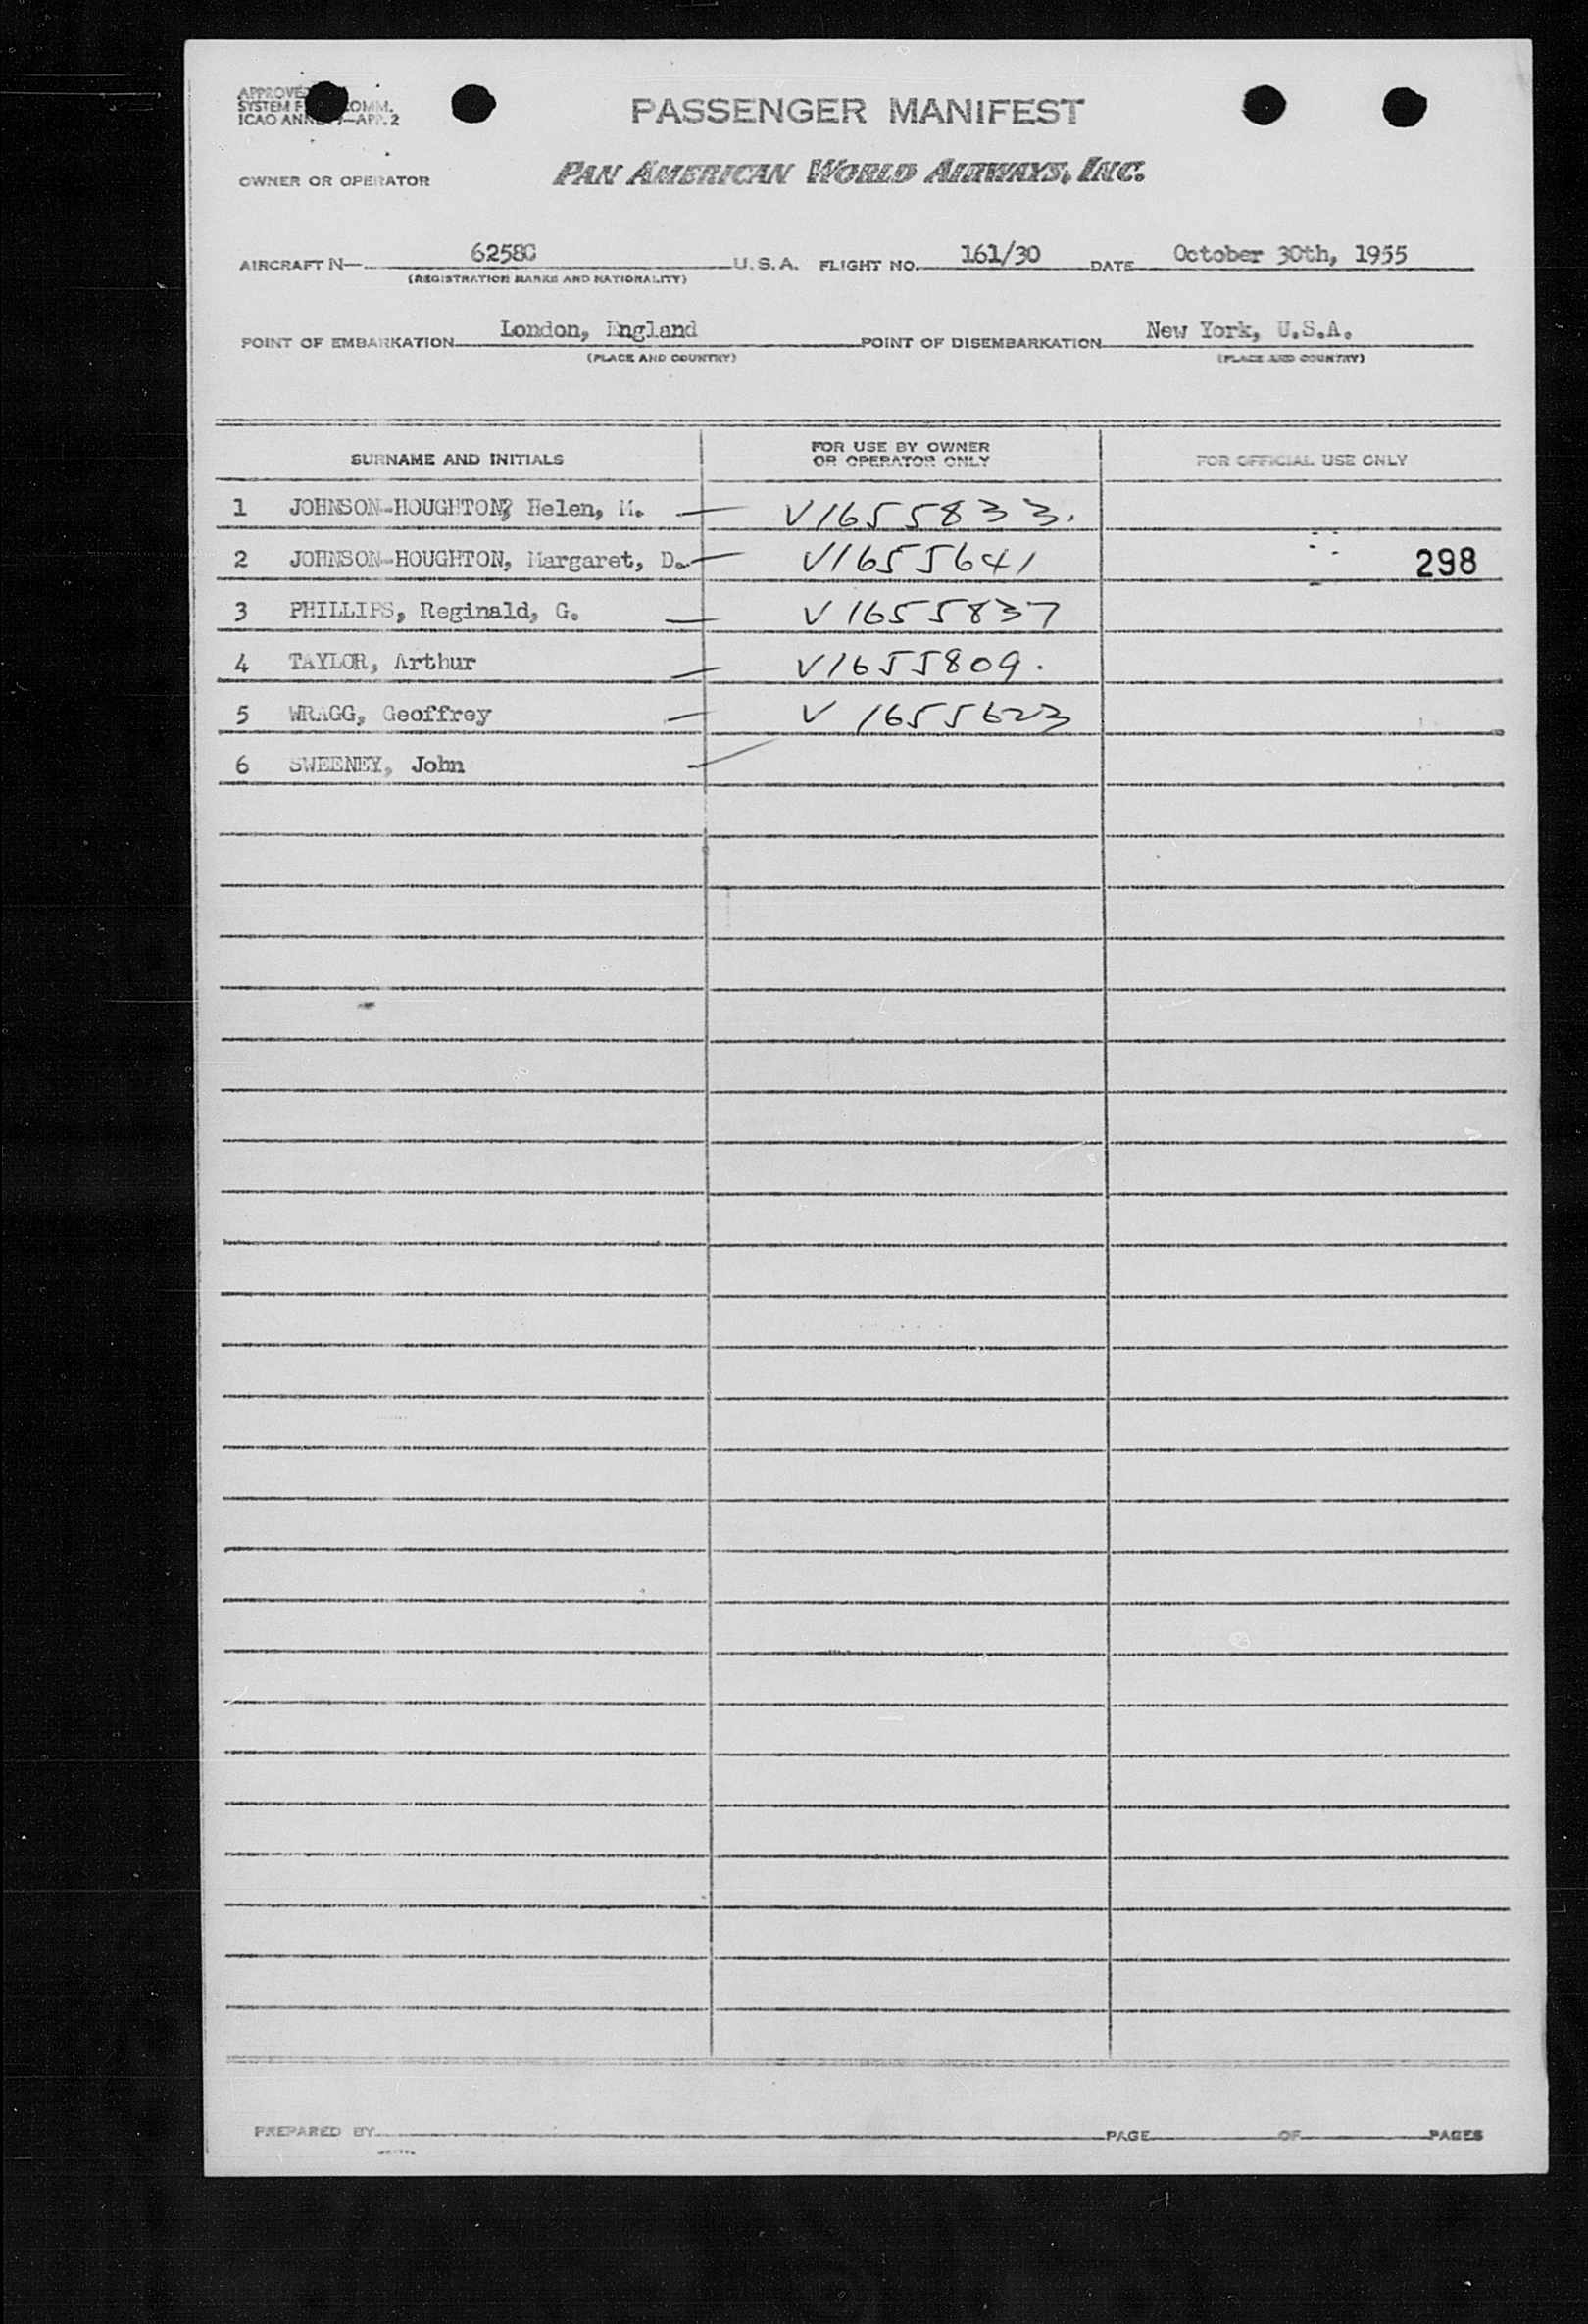 APPROVED
SYSTEM F COMM.
ICAO ANNEX 9—APP. 2
PASSENGER MANIFEST
OWNER OR OPERATOR PAN AMERICAN WORLD AIRWAYS, INC.
AIRCRAFT N— 6258C U.S.A. FLIGHT NO. 161/30 DATE October 30th, 1955
(REGISTRATION MARKS AND NATIONALITY)
POINT OF EMBARKATION London, England POINT OF DISEMBARKATION New York, U.S.A.
(PLACE AND COUNTRY) (PLACE AND COUNTRY)
SURNAME AND INITIALS FOR USE BY OWNER OR OPERATOR ONLY FOR OFFICIAL USE ONLY
1 JOHNSON-HOUGHTON, Helen, M. — V1655833.
2 JOHNSON-HOUGHTON, Margaret, D. — V1655641 298
3 PHILLIPS, Reginald, G. — V1655837
4 TAYLOR, Arthur — V1655809.
5 WRAGG, Geoffrey — V1655623
6 SWEENEY, John —
PREPARED BY PAGE OF PAGES